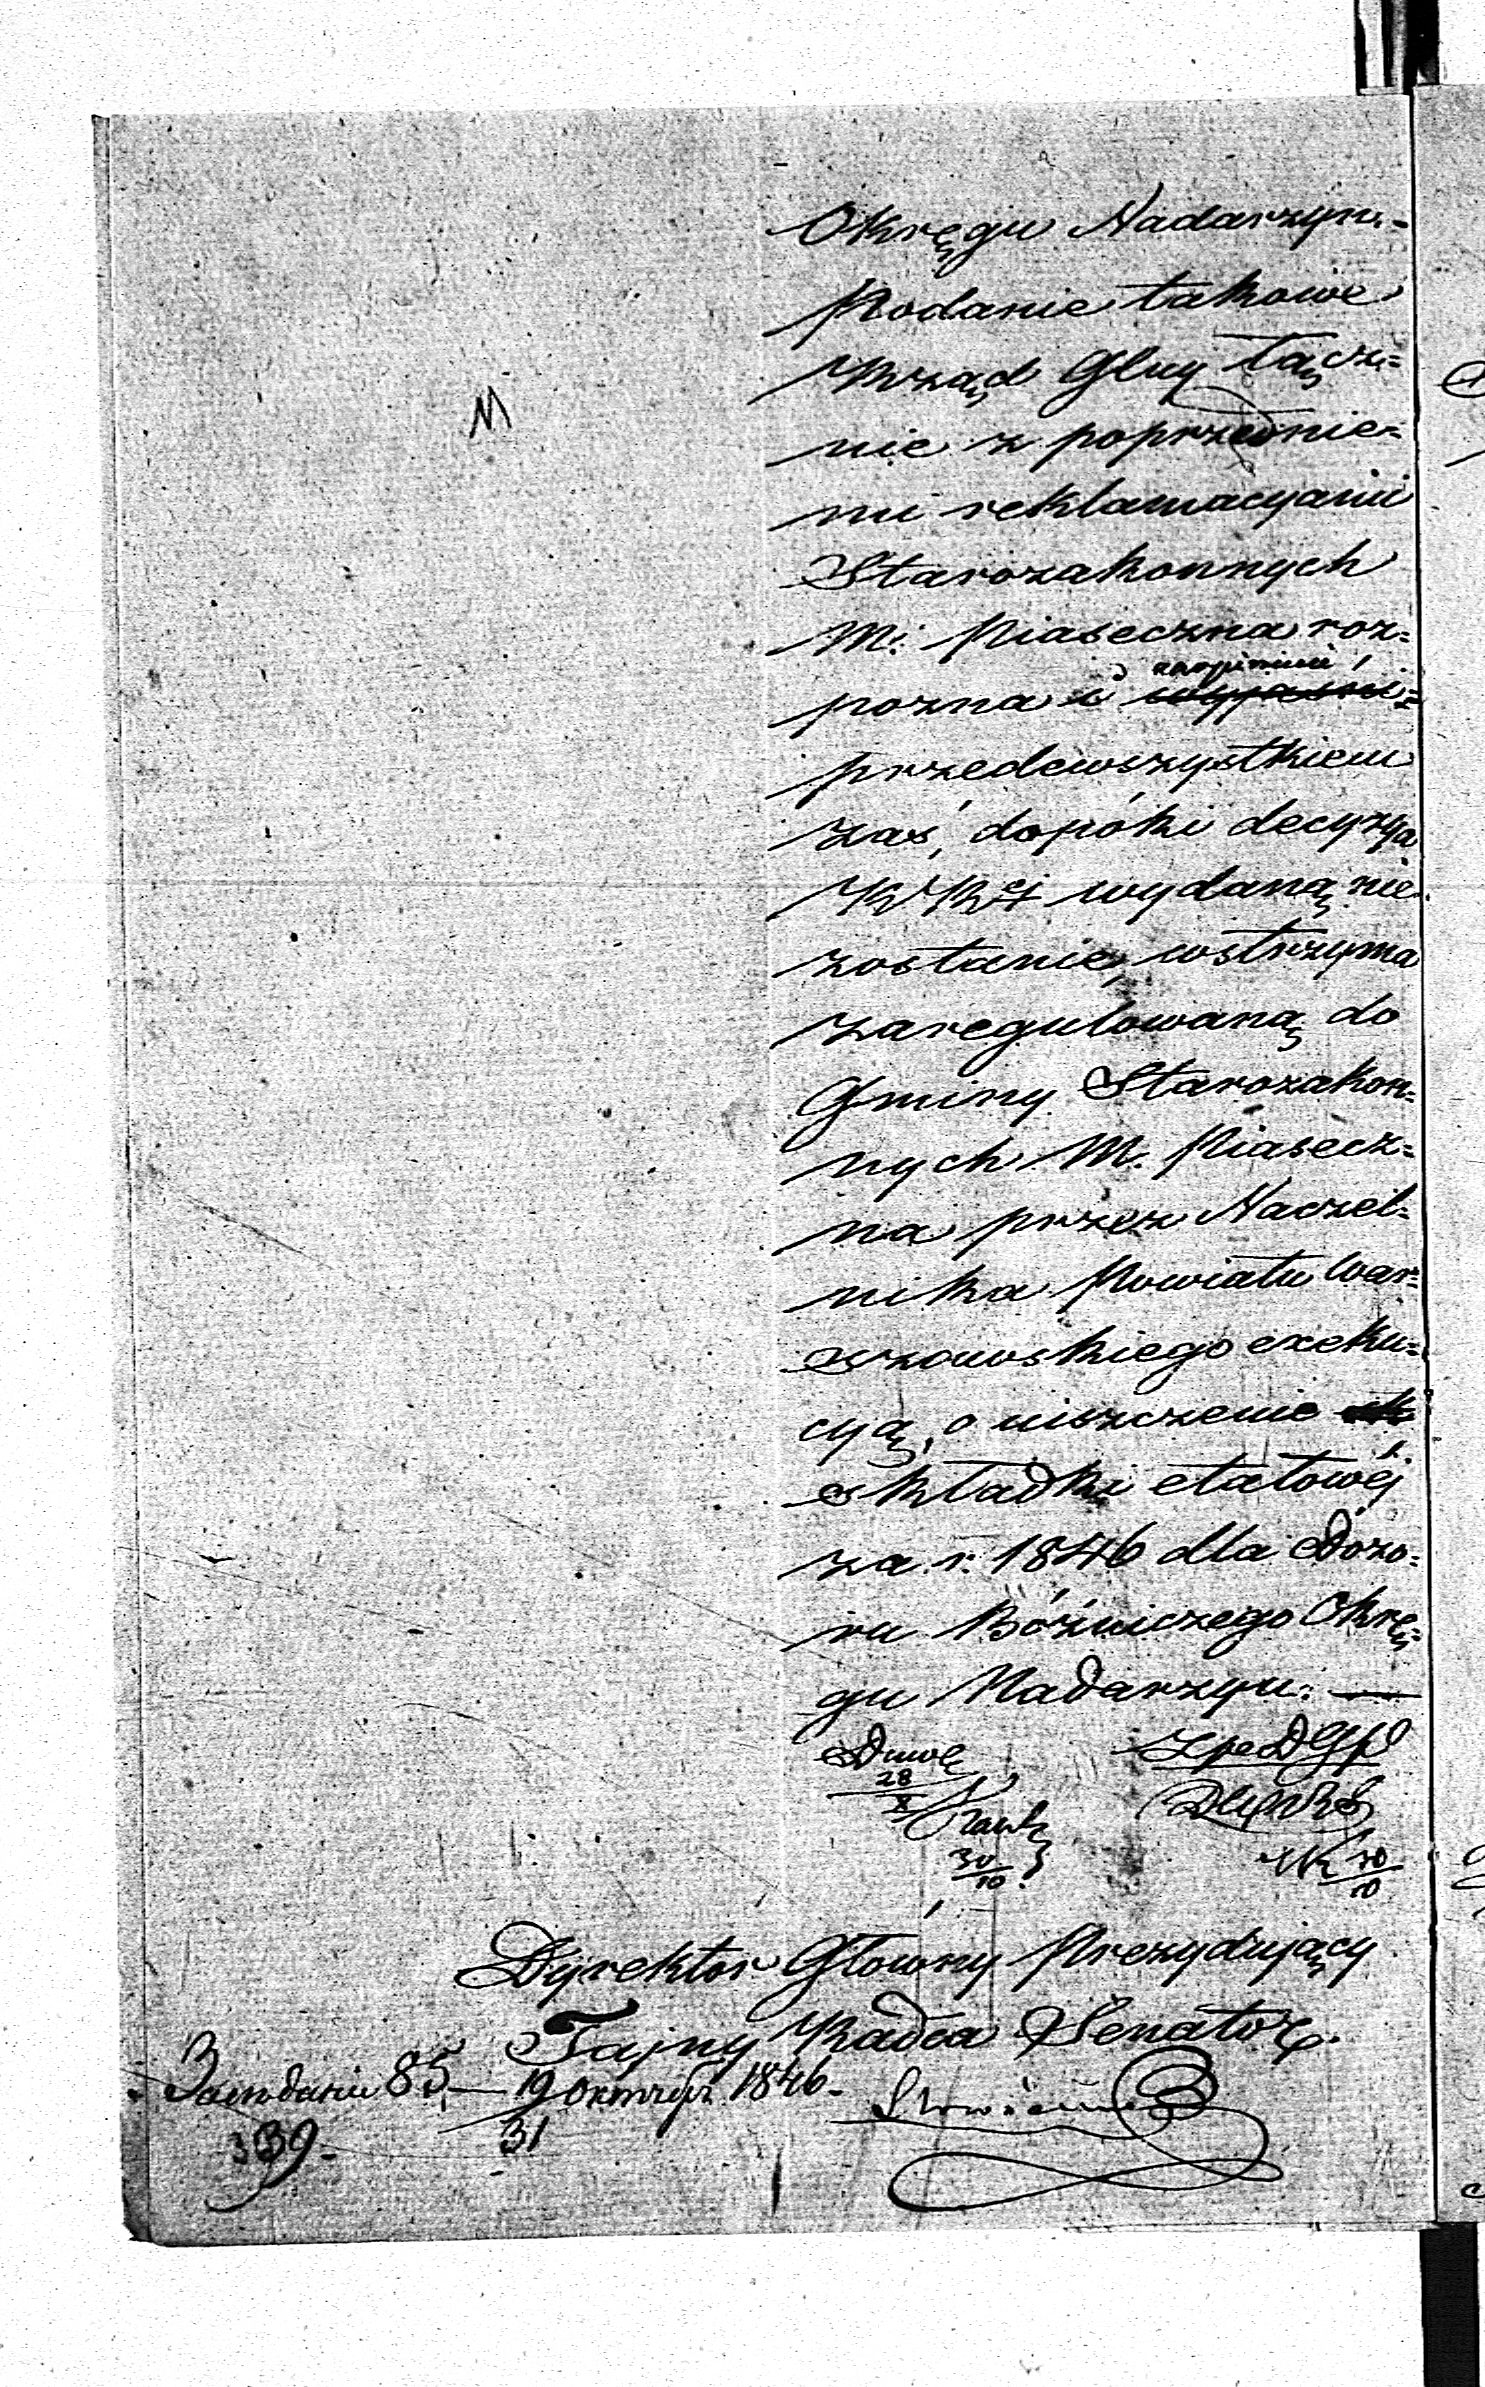 Okręgu Nadarzyn.-
Podanie takowe
Rząd Glny łącz=
nie z poprzednie=
mi reklamacyami
Starozakonnych
M: Piaseczna roz=
pozna i zaopiniuje
przedewszystkiem
zaś, dopóki decyzya
KR wydaną nie
zostanie, wstrzyma
zaregulowaną do
Gminy Starozakon=
nych M. Piasecz=
na przez Naczel=
nika Powiatu War=
szawskiego exeku=
cyą, o uiszczenie
składki etatowéj
za r. 1846 dla Dozo=
ru Bóżniczego Okrę=
gu Nadarzyn. —
28
X
30
10
30
10
Dyrektor Główny Prezydujący
Tajny Radca Senator
85 — 19 октября 1846.
339. 31